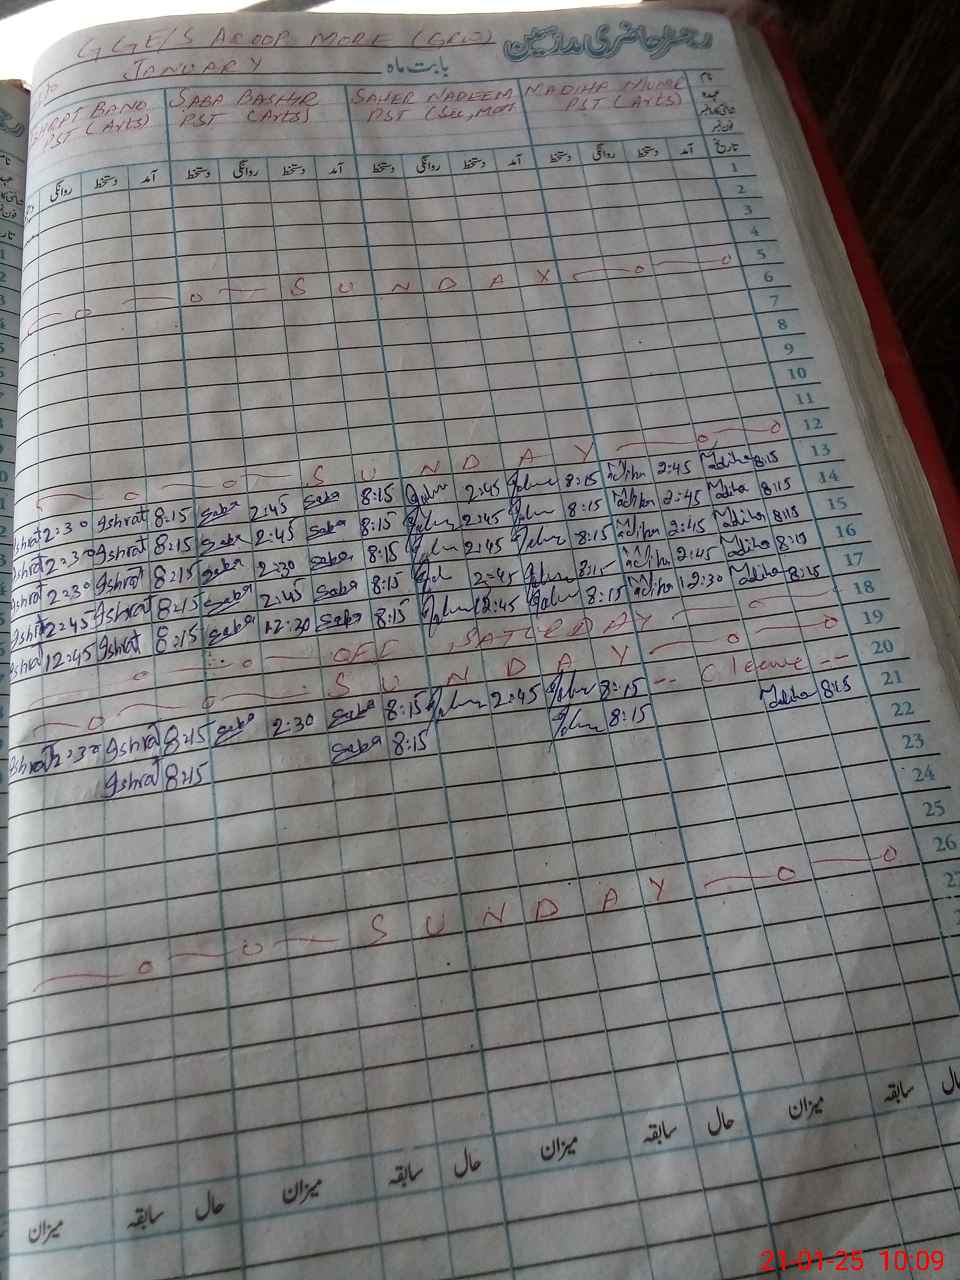 رجسٹر حاضری مدرسین
GGE/S AROOP MORE (GRW)
بابت ماہ JANUARY
BANO PST (Arts) SABA BASHIR PST (Arts) SAHER NADEEM PST (Sci, Math MADIHA PST (Arts)
تاریخ آمد دستخط روانگی دستخط آمد دستخط روانگی دستخط آمد دستخط روانگی دستخط آمد دستخط روانگی
1
2
3
4
5 SUNDAY
6
7
8
9
10
11
12 SUNDAY
13 8:15 2:45 8:15 2:45 8:15 Saba 2:45 Saba 8:15 Ishrat 2:30 Ishrat
14 8:15 2:45 8:15 2:45 8:15 Saba 2:45 Saba 8:15 Ishrat 2:30 Ishrat
15 8:15 2:45 8:15 2:45 8:15 Saba 2:30 Saba 8:15 Ishrat 2:30 Ishrat
16 8:15 2:45 8:15 2:45 8:15 Saba 2:45 Saba 8:15 Ishrat 2:45 Ishrat
17 8:15 12:30 8:15 12:45 8:15 Saba 12:30 Saba 8:15 Ishrat 12:45 Ishrat
18 OFF SATURDAY
19 SUNDAY
20 -- C leave -- 8:15 2:45 8:15 Saba 2:30 Saba 8:15 Ishrat 2:30 Ishrat
21 8:15 8:15 Saba 8:15 Ishrat
22
23
24
25
26 SUNDAY
27
حال سابقہ میزان حال سابقہ میزان حال سابقہ میزان حال سابقہ میزان
21-01-25 10:09